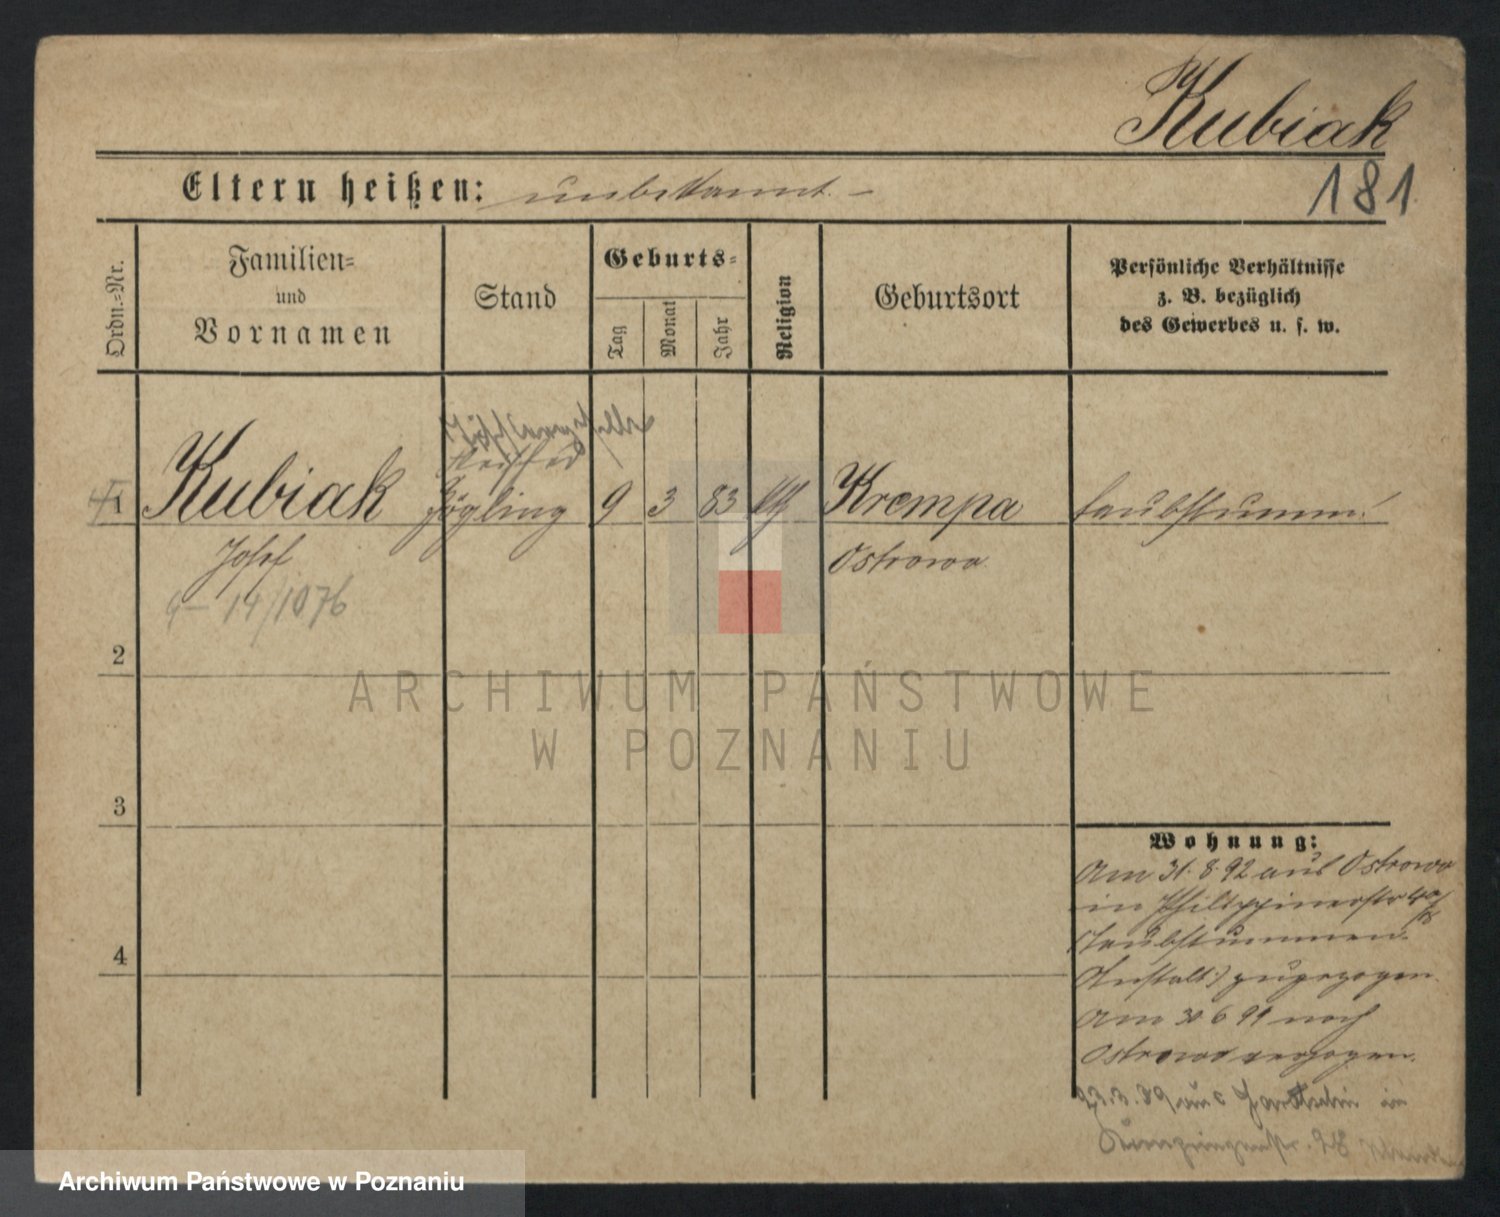 Kubiak
181
Eltern heißen: unbekannt. —
Ordn.-Nr.
Familien-
und
Vornamen
Stand
Geburts-
Tag
Monat
Jahr
Religion
Geburtsort
Persönliche Verhältnisse
z. B. bezüglich
des Gewerbes u. s. w.
1
Kubiak
Zögling
9
3
83
kth
Krempa
taubstumm.
Josef
Ostrowo
9 — 14/1076
2
3
4
Wohnung:
Am 31.8.92 aus Ostrowo
in Philippinerstr 4a/
(Taubstummen-
Anstalt) zugezogen.
Am 30 6 99 nach
Ostrowo verzogen.
23.3.89 aus Jarotschin in
ARCHIWUM PAŃSTWOWE
W POZNANIU
Archiwum Państwowe w Poznaniu